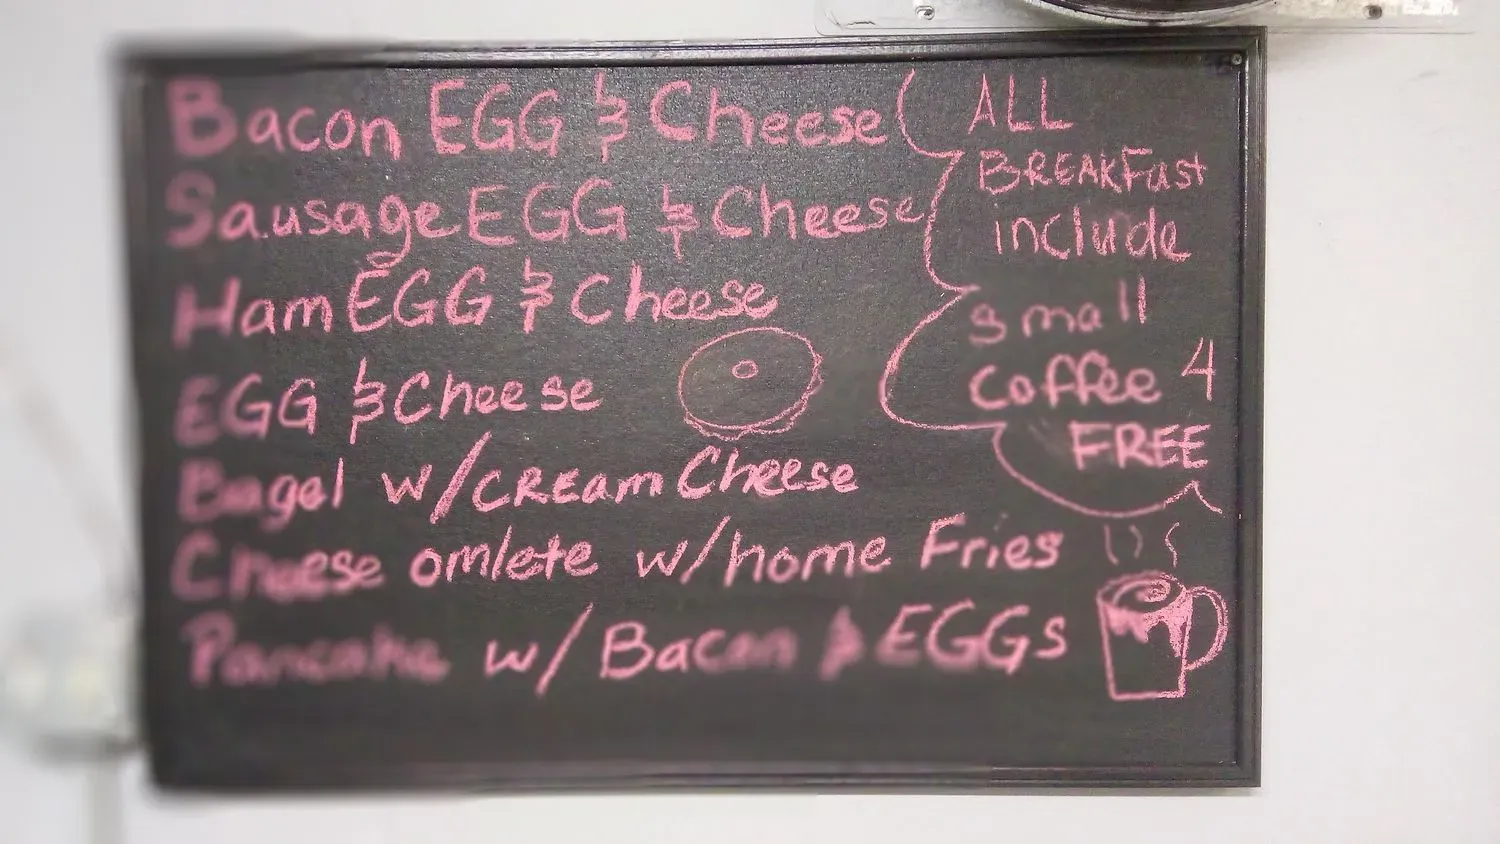 Bacon EGG & Cheese
Sausage EGG & Cheese
Ham EGG & Cheese
EGG & Cheese
Bagel w/CREam Cheese
Cheese omlete w/home Fries
Pancake w/ Bacon & EGGs
ALL
BREAKFast
include
small
Coffee 4
FREE